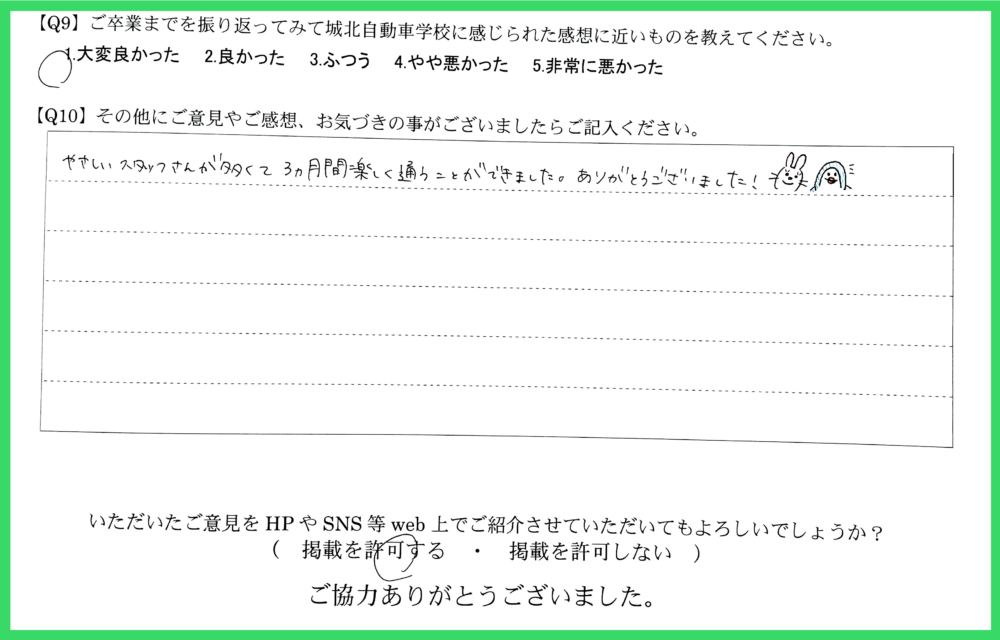 【Q9】ご卒業までを振り返ってみて城北自動車学校に感じられた感想に近いものを教えてください。
1.大変良かった 2.良かった 3.ふつう 4.やや悪かった 5.非常に悪かった
【Q10】その他にご意見やご感想、お気づきの事がございましたらご記入ください。
やさしいスタッフさんが多くて 3ヵ月間楽しく通うことができました。ありがとうございました!
いただいたご意見を HP や SNS 等 web 上でご紹介させていただいてもよろしいでしょうか?
( 掲載を許可する ・ 掲載を許可しない )
ご協力ありがとうございました。